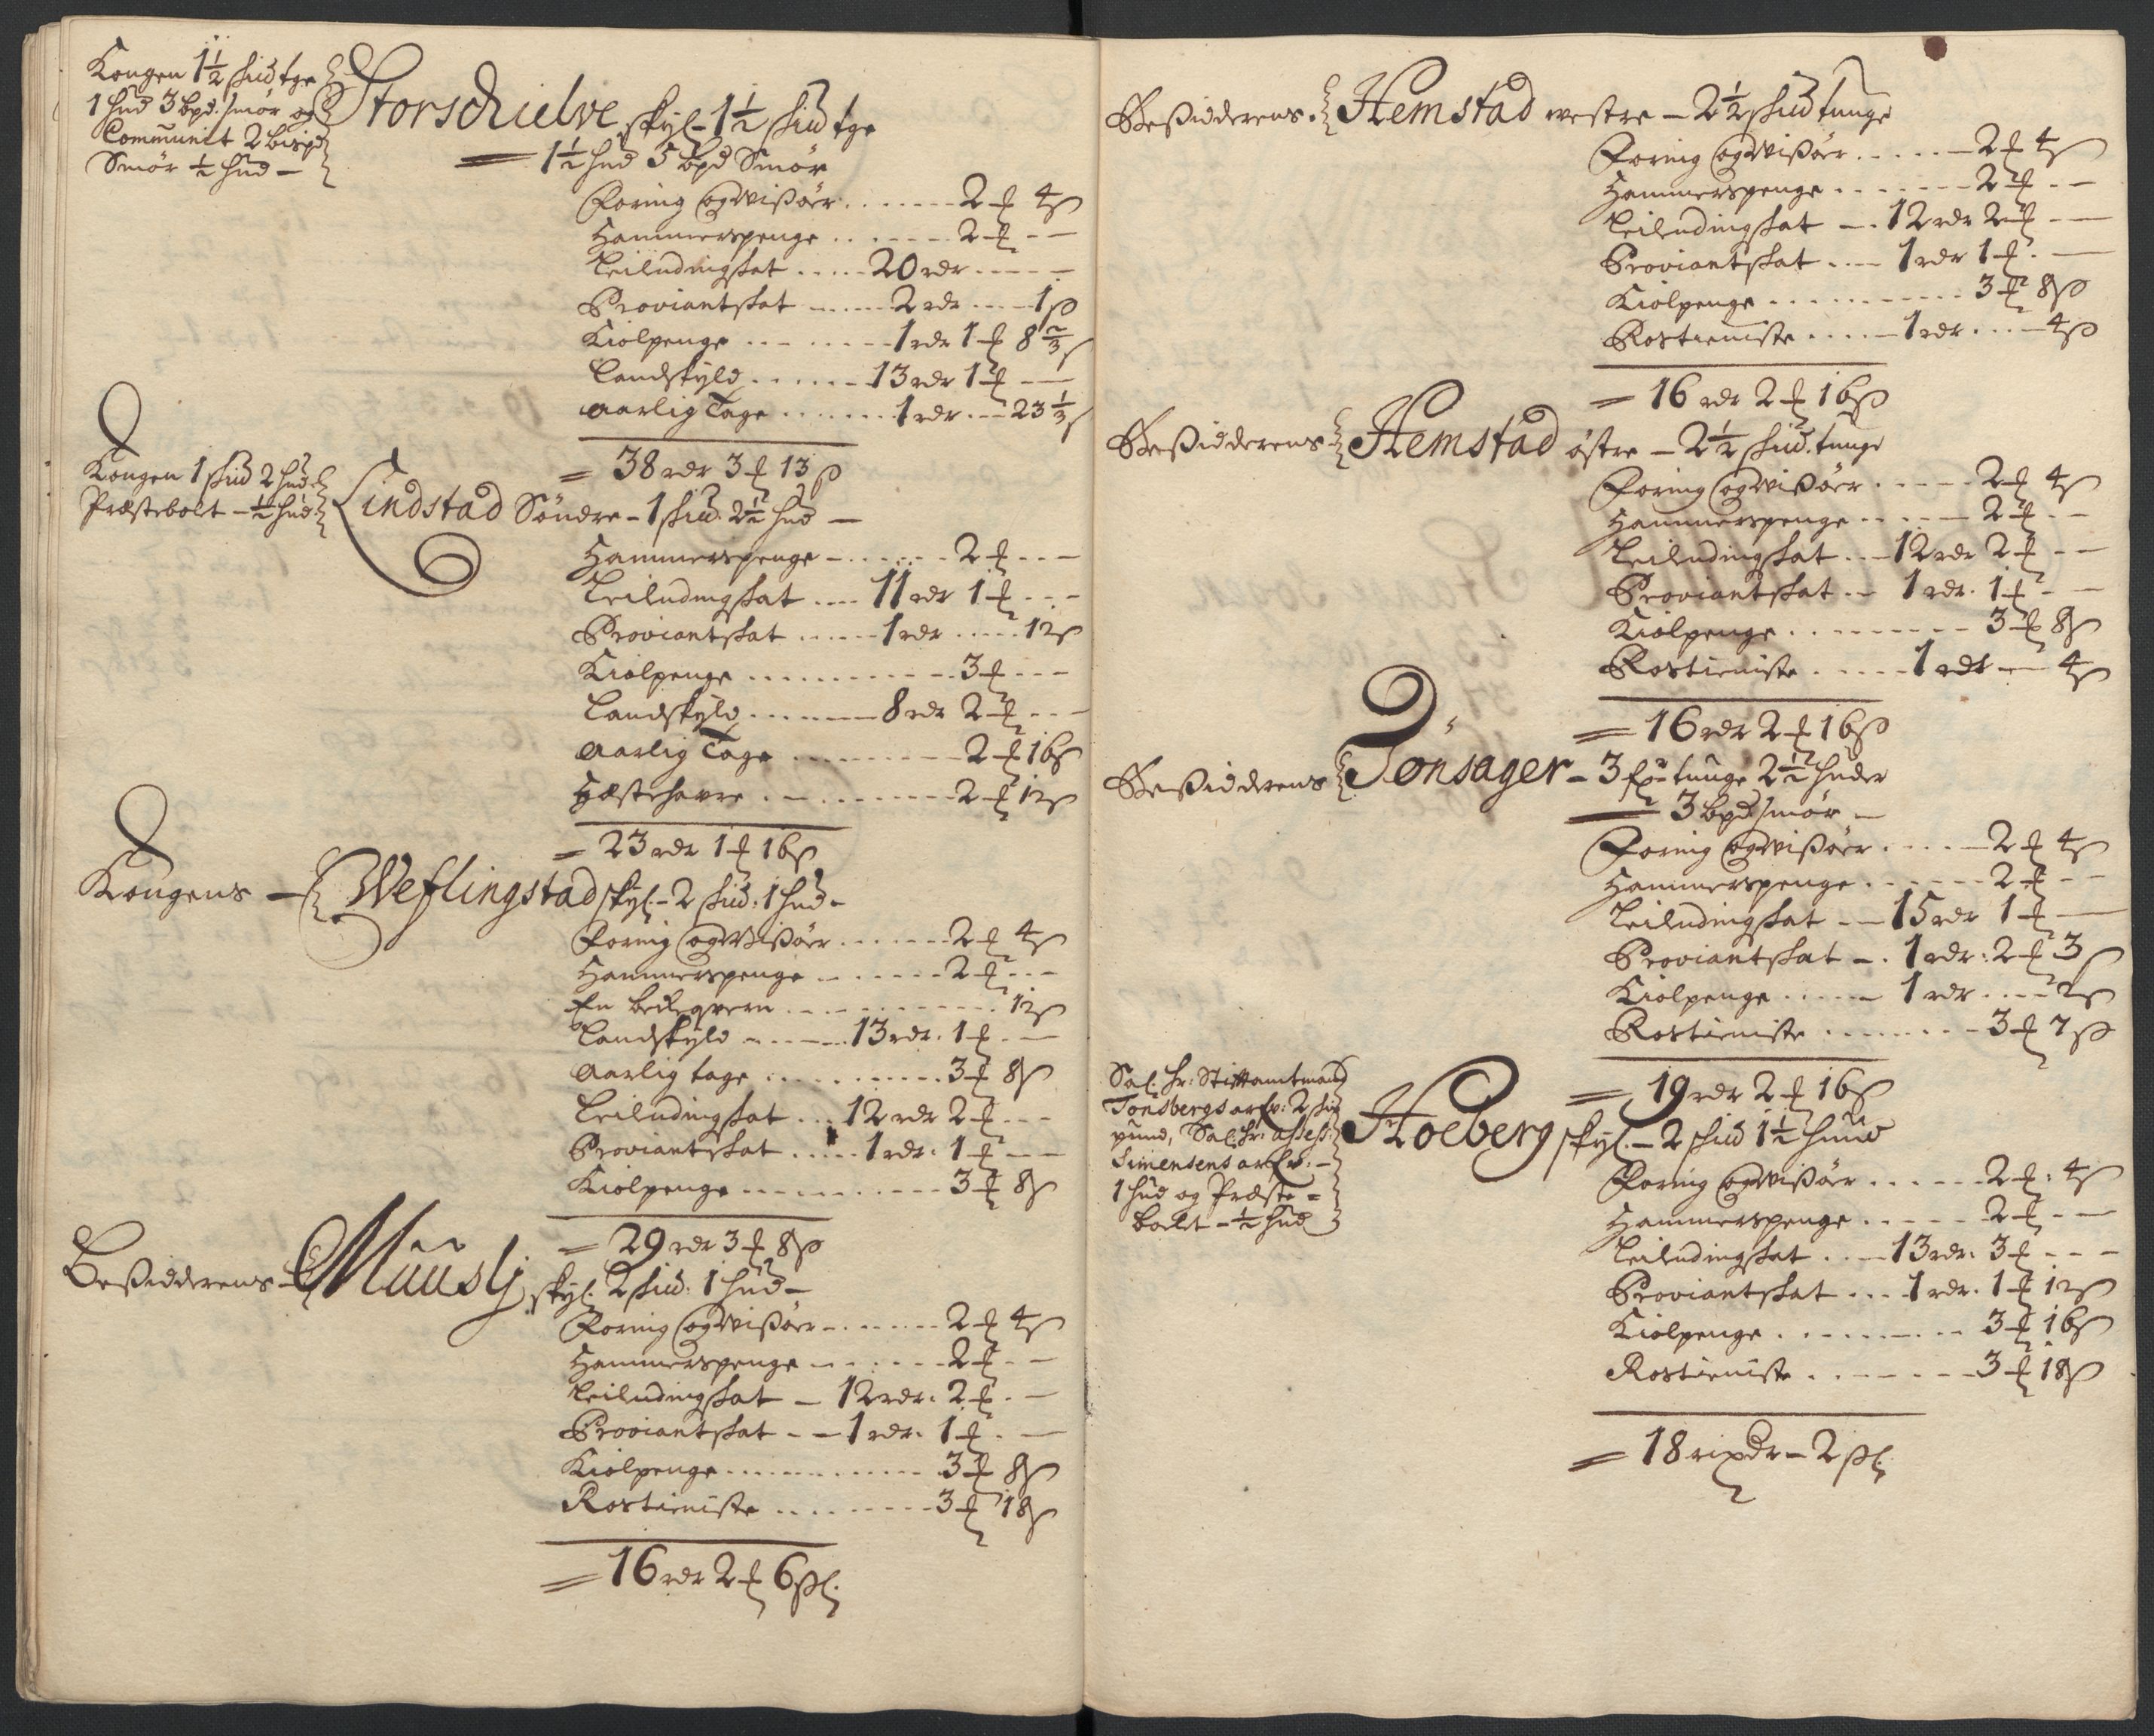 Kongen 1½ skud tge
1 hud 3 bpd. smør og
Communit 2 bispd
Smør ½ hud –
Storschielve skyl – 1½ skud tge
= 1½ hud 5 bpd Smør
Foring og Wißøer ....... 2 ₰ 4 ß
Hammerspenge ....... 2 ₰ – –
Leilndingskat ..... 20 rdr .....
Proviantskat ...... 2 rdr .... 1 ß
Kiølpenge ........ 1 rdr 1 ₰ 8⅔ ß
Landskyld ...... 13 rdr 1 ₰ –
Aarlig Tage ....... 1 rdr – 23⅓ ß
= 38 rdr 3 ₰ 13 ß
Kongen 1 skud 2 hud
Præstebolt – ½ hud
Lindstad Söndre – 1 skud. 2½ hud –
Hammerspenge ....... 2 ₰ – –
Leilndingskat .... 11 rdr 1 ₰ – –
Proviantskat ..... 1 rdr ..... 12 ß
Kiølpenge ............ 3 ₰ – –
Landskyld ....... 8 rdr 2 ₰ – –
Aarlig Tage ......... 2 ₰ 16 ß
Hæstehavre .......... 2 ₰ 12 ß
= 23 rdr 1 ₰ 16 ß
Kongens – Weflingstad skyl – 2 skud: 1 hud –
Foring og Wißøer ....... 2 ₰ 4 ß
Hammerspenge ....... 2 ₰ – –
En bechqvern ........... 12 ß
Landskyld ...... 13 rdr. 1 ₰ –
Aarlig tage .......... 3 ₰ 8 ß
Leilndingskat ... 12 rdr 2 ₰ – –
Proviantskat ..... 1 rdr. 1 ₰ – –
Kiølpenge .......... 3 ₰ 8 ß
= 29 rdr 3 ₰ 8 ß
Beßidderens – Muusli skyl: 2 skud: 1 hud –
Foring og Wißøer ....... 2 ₰ 4 ß
Hammerspenge ...... 2 ₰ – –
Leilndingskat – 12 rdr. 2 ₰ –
Proviantskat – – 1 rdr. 1 ₰ –
Kiølpenge ............ 3 ₰ 8 ß
Rostieniste ......... 3 ₰ 18 ß
= 16 rdr 2 ₰ 6 ßl:
Beßidderens – Hemstad westre – 2½ skud tunge
Foring og Wißøer ..... 2 ₰ 4 ß
Hammerspenge ....... 2 ₰ – –
Leilndingskat – . 12 rdr 2 ₰ –
Proviantskat ... 1 rdr 1 ₰ –
Kiølpenge .......... 3 ₰ 8 ß
Rostieniste ..... 1 rdr .... 4 ß
= 16 rdr 2 ₰ 16 ß
Beßidderens – Hemstad östre – 2½ skud. tunge
Foring og Wißøer ..... 2 ₰ 4 ß
Hammerspenge ..... 2 ₰ – –
Leilndingskat ... 12 rdr 2 ₰ – –
Proviantskat – 1 rdr. 1 ₰ – –
Kiølpenge ......... 3 ₰ 8 ß
Rostieniste ..... 1 rdr – 4 ß
= 16 rdr 2 ₰ 16 ß
Beßidderens Tonsager – 3 tunge 2½ huder
3 bpd smør –
Foring og Wißøer ..... 2 ₰ 4 ß
Hammerspenge ...... 2 ₰ – –
Leilndingskat – 15 rdr 1 ₰ –
Proviantskat – . 1 rdr: 2 ₰ 3 ß
Kiølpenge ..... 1 rdr ... 2 ß
Rostieniste ....... 3 ₰ 7 ß
= 19 rdr 2 ₰ 16 ß
Sal. Hr: Stiftamtmand
Tonsbergs arfv: 2 ski
pund, Sal: Hr: assess:
Simensens arfv: –
1 hud og Præste =
bolet – ½ hud
Hoeberg skyl. – 2 skud 1½ huud
Foring og Wißøer ...... 2 ₰. 4 ß
Hammerspenge ..... 2 ₰ – –
Leilndingskat ... 13 rdr. 3 ₰ – – –
Proviantskat ... 1 rdr. 1 ₰ 12 ß
Kiølpenge ......... 3 ₰ 16 ß
Rostieniste ....... 3 ₰ 18 ß
= 18 rixdr – 2 ßl: